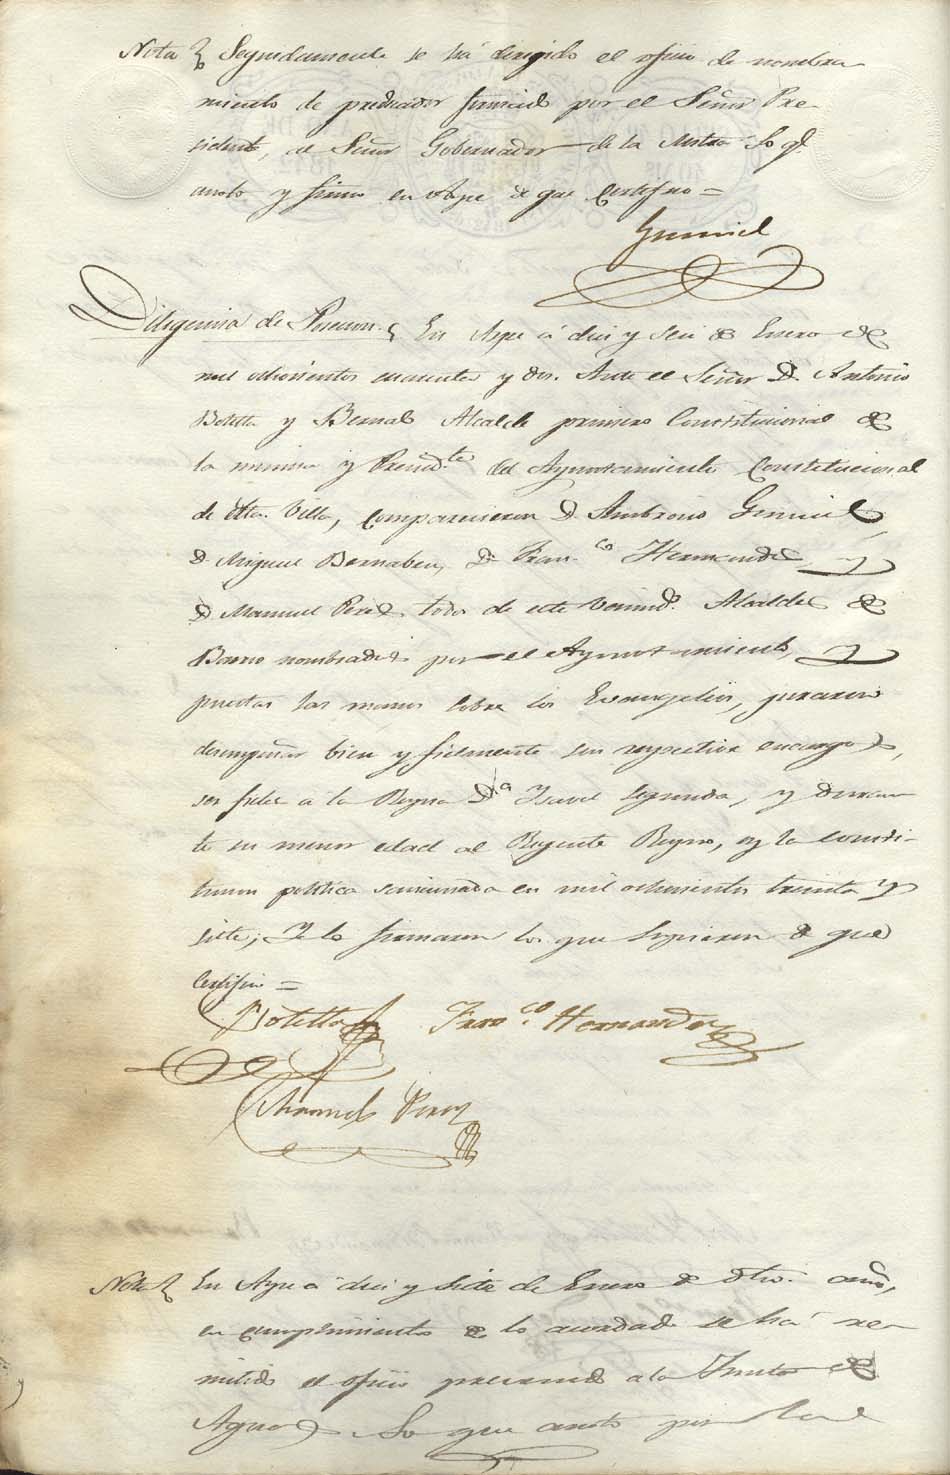 Nota Seguidamente se há dirigido el oficio de nombra
miento de predicador firmado por el Señor Pre-
sidente, al Señor Gobernador de la Mitra Lo q.
anoto y firmo en Aspe de que Certifico =
Gumiel
Diligencia de Posesion. En Aspe á diez y seis de Enero de
mil ochocientos cuarenta y dos. Ante el Señor D. Antonio
Botella y Bernal Alcalde primero Constitucional de
la misma y Presid.te del Ayuntamiento Constitucional
de dha. Villa, comparecieron D. Ambrosio Gumiel,
D. Miguel Bernabeu, D. Fran.co Hernandez, y
D. Manuel Perez, todos de este Vecind.o Alcaldes de
Barrio nombrados por el Ayuntamiento, y
puestas las manos sobre los Evangelios, juraron
desempeñar bien y fielmente sus respectivos encargos,
ser fieles a la Reyna D.a Ysavel segunda, y duran
te su menor edad al Regente Reyno, y la consti-
tucion politica sancionada en mil ochocientos treinta y
siete; Y lo firmaron los que supieron de que
Certifico =
Botella Fran.co Hernandez
Manuel Perez
Nota En Aspe á diez y siete de Enero de dho. año,
en cumplimiento de lo acordado se há re-
mitido el oficio prevenido a la Junta de
Aguas Lo que anoto por